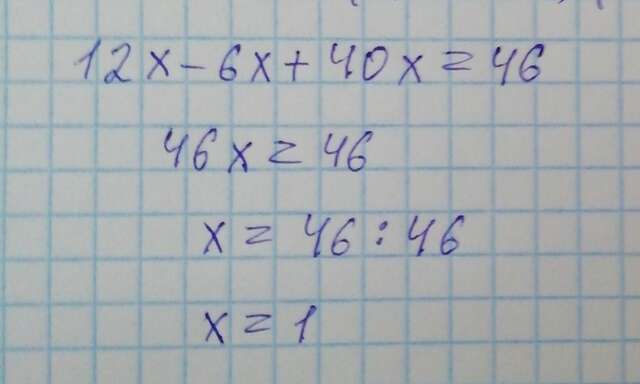 12x - 6x + 40x = 46
46x = 46
x = 46 : 46
x = 1